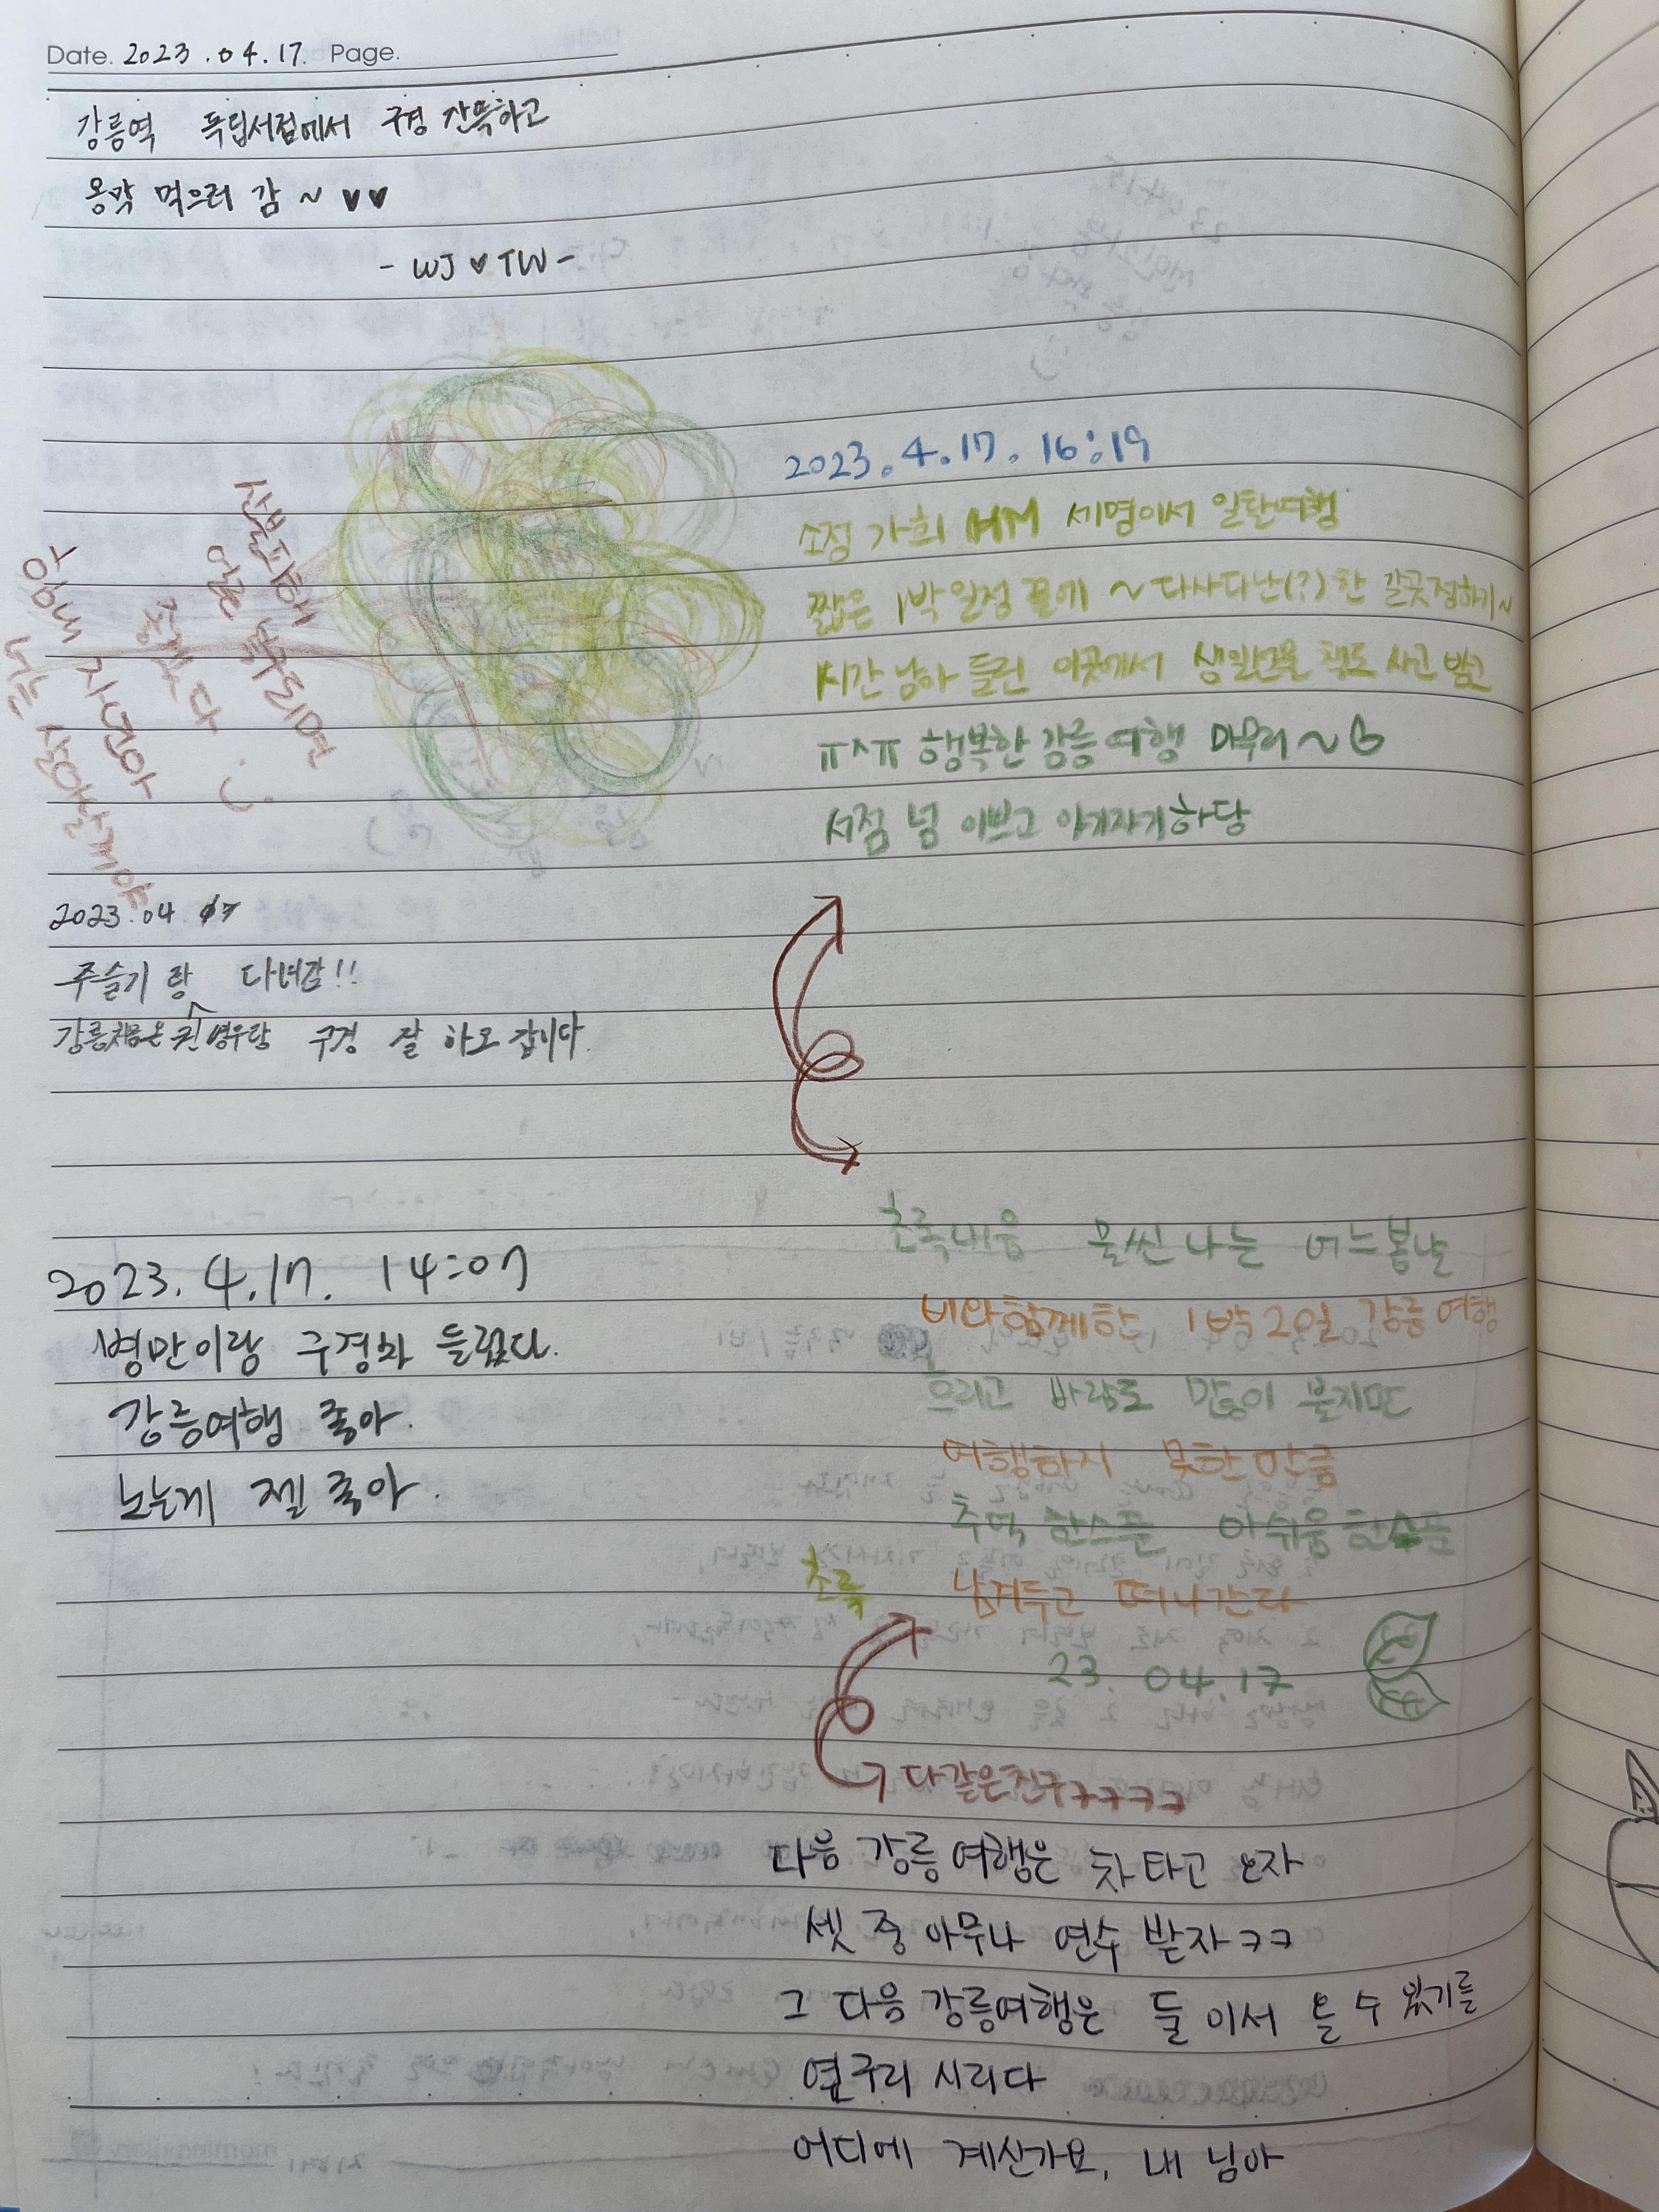 Date. 2023.04.17. Page.
강릉역 독립서점에서 구경 잔뜩하고
옹막 먹으러 감 ~ ♥♥
- WJ ♥ TW -
산불피해
얼른 복구되면
좋겠다 :)
힘내 자연아
너는 살아날꺼야
2023.04 17
주슬기 랑 다녀감!!
강릉처음온 퀸 영우랑 구경 잘 하고 갑니다.
2023. 4. 17. 14:07
병만이랑 구경와 들렀다.
강릉여행 좋아.
노는게 젤 좋아.
2023. 4. 17. 16:19
소정 가희 HM 세명이서 일탈여행
짧은 1박일정 끝에 ~다사다난(?)한 갈곳정하기~
시간 남아 들린 이곳에서 생일선물 책도 사고 받고
ㅠ^ㅠ 행복한 강릉여행 마무리~
서점 넘 이쁘고 아기자기하당
초록내음 물씬 나는 어느봄날
비와함께한, 1박2일 강릉여행
흐리고 바람도 많이 불지만
여행하지 못한 만큼
추억 한스푼 아쉬움 한스푼
초록
남겨두고 떠나간다
23. 04. 17
다같은친구ㅋㅋㅋㅋ
다음 강릉여행은 차 타고 오자
셋 중 아무나 연수 받자 ㅋㅋ
그 다음 강릉여행은 둘이서 올 수 있기를
옆구리 시리다
어디에 계신가요, 내 님아